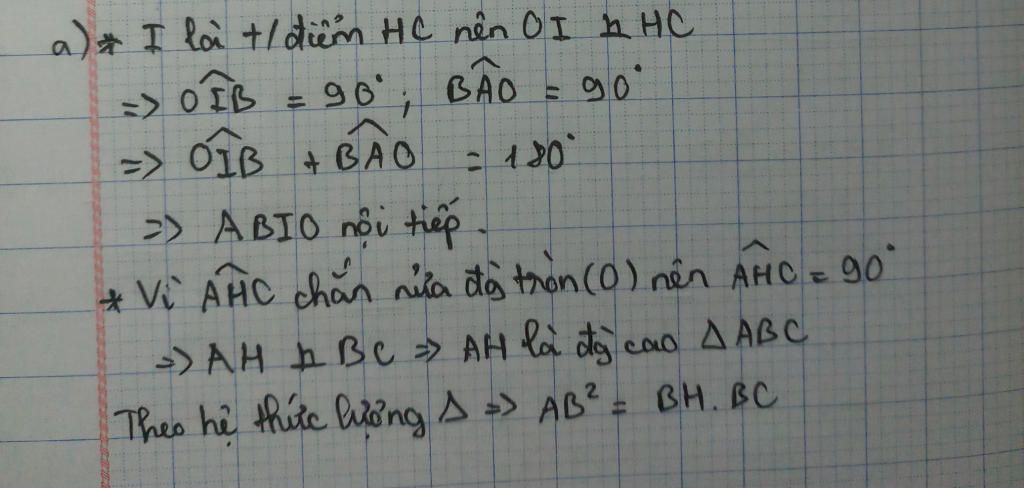 a) * I là t/điểm HC nên OI ⊥ HC
=> \widehat{OIB} = 90°; \widehat{BAO} = 90°
=> \widehat{OIB} + \widehat{BAO} = 180°
=> ABIO nội tiếp.
* Vì \widehat{AHC} chắn nửa đg tròn (O) nên \widehat{AHC} = 90°
=> AH ⊥ BC => AH là đg cao Δ ABC
Theo hệ thức lượng Δ => AB² = BH. BC